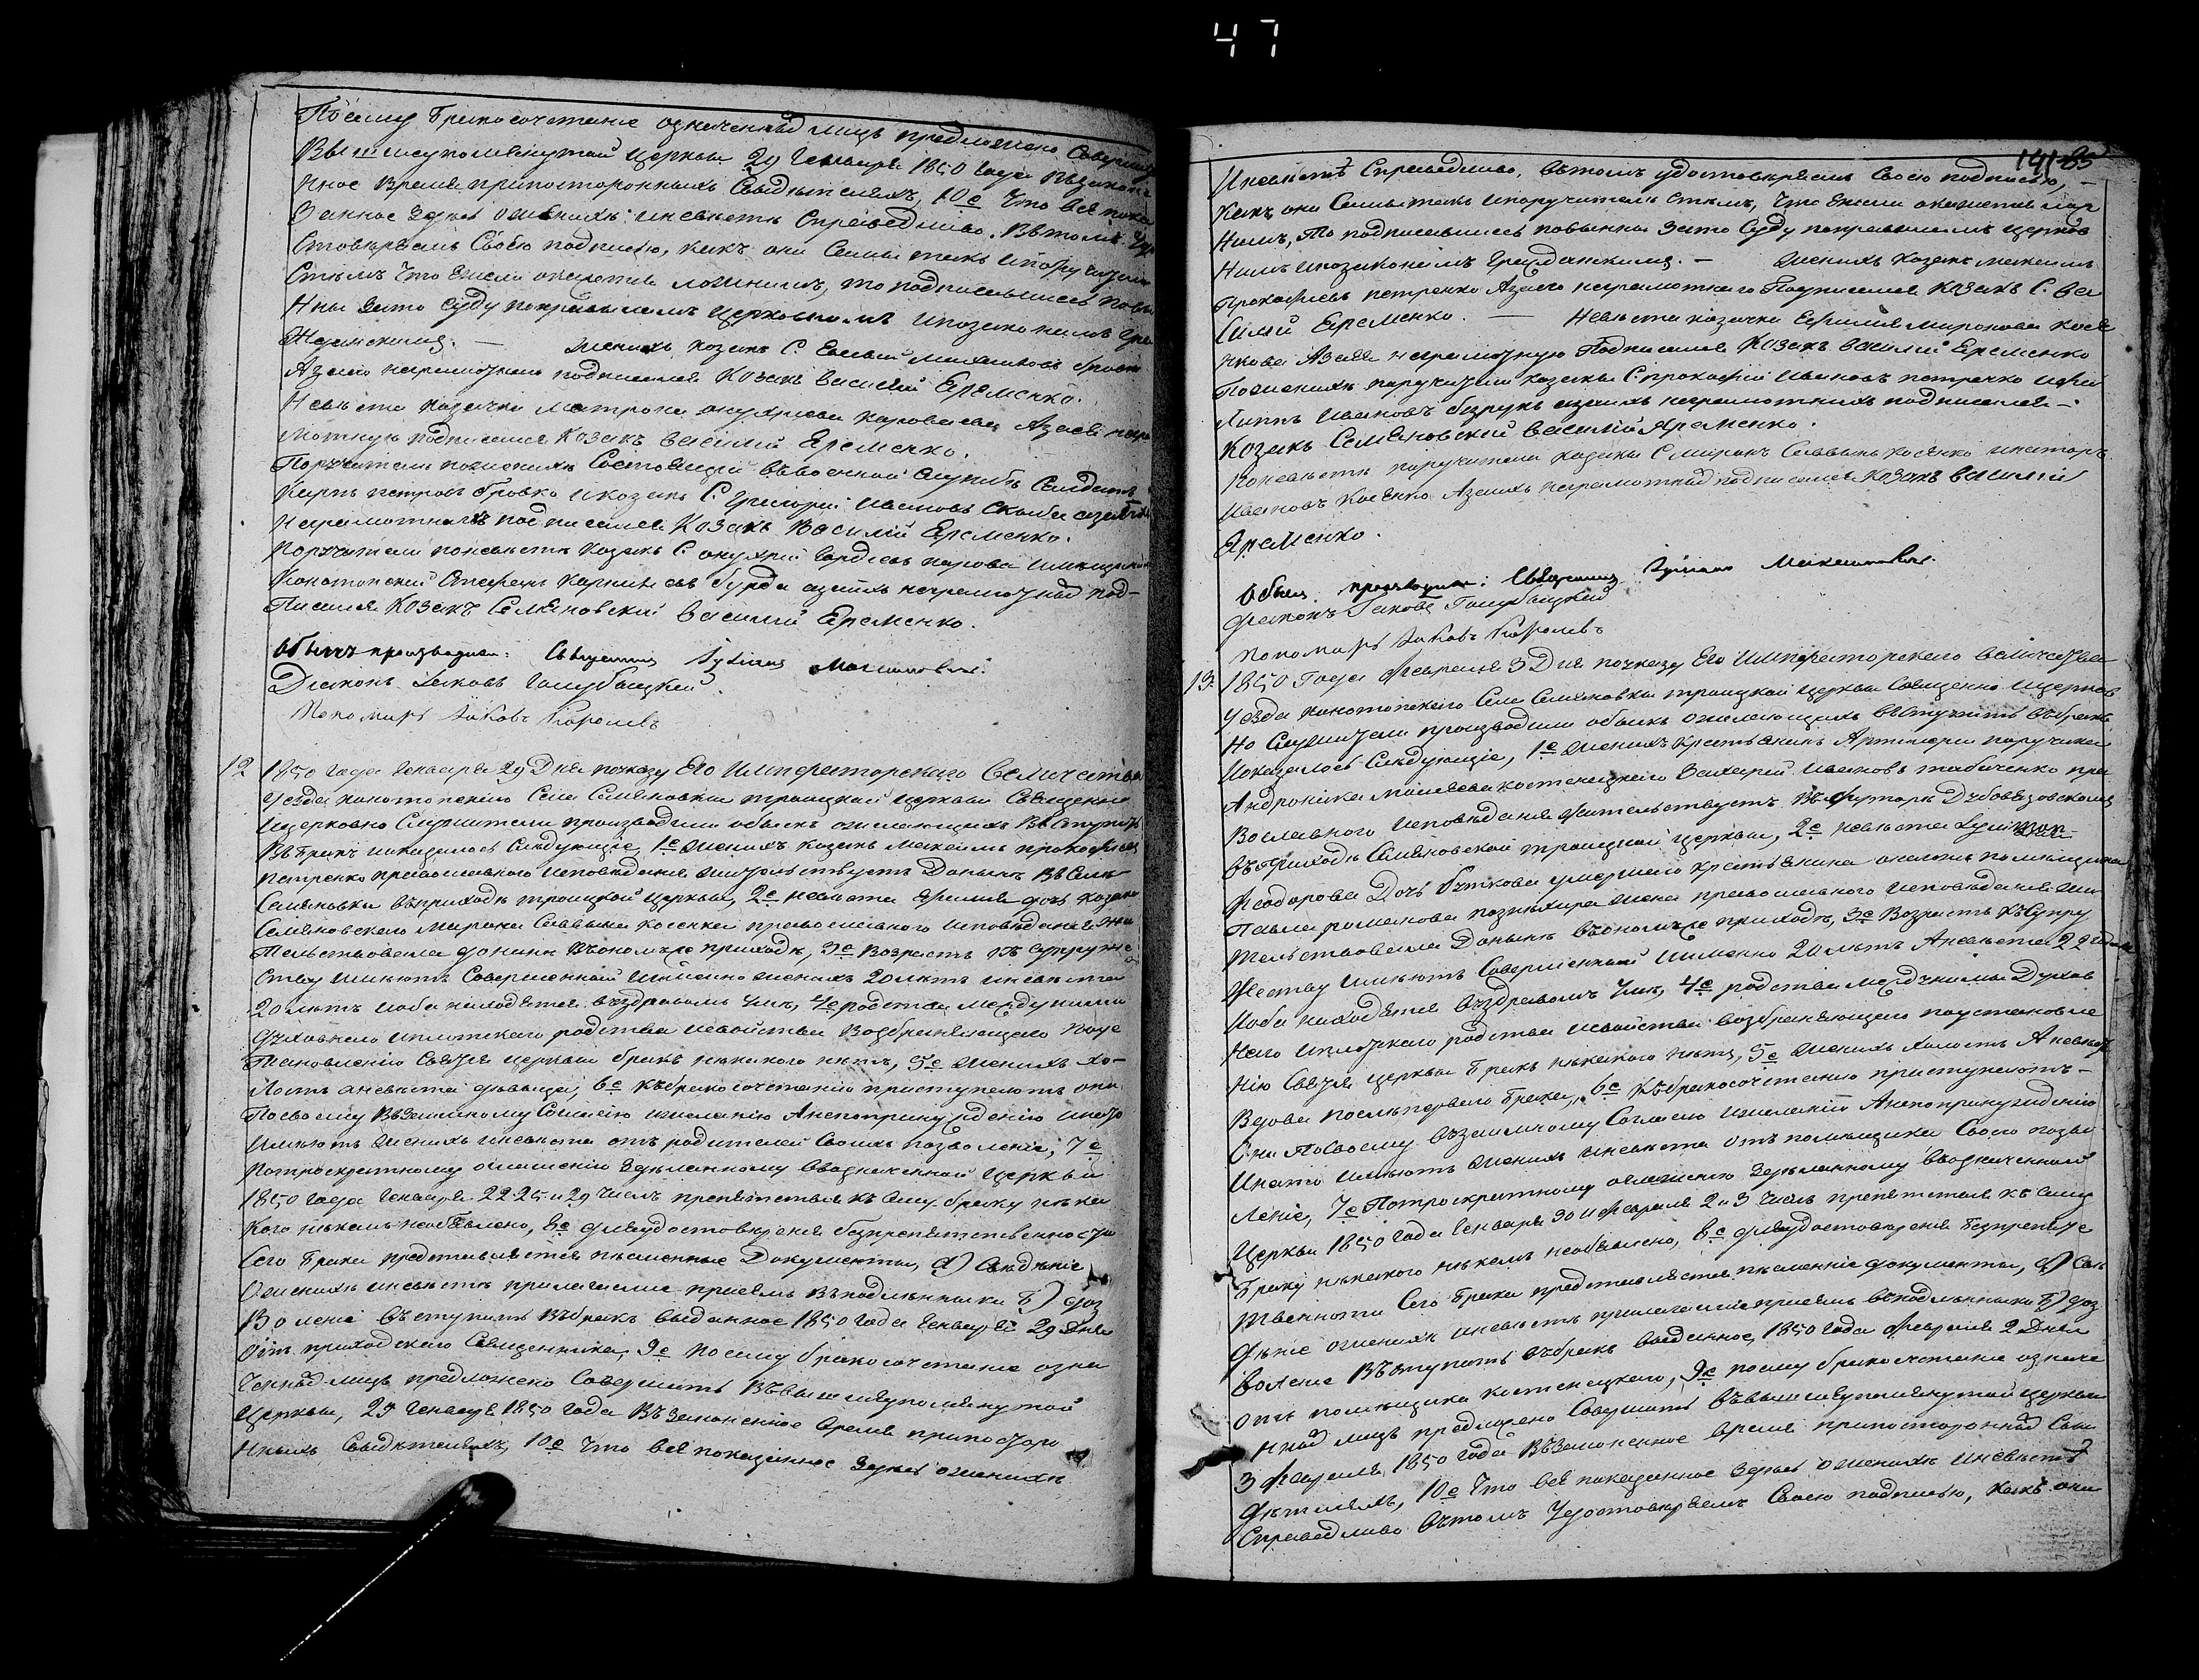 47
Посему бракосочетаніе означенныхъ лицъ предложено Соверши
Ввышеупомянутой церкви 29 Генваря 1850 года въ закон
ное время припостороннихъ Свидѣтеляхъ, 10е Что всё пока
занное здесь ожениxѣ иневѣстѣ Справедливо. Вътомъ удо
стовѣряемъ Своею подписью, какъ они Сами такъ ипоручители
Стѣмъ что Если окажется ложнымъ, то подписавшіеся повин
ны зато Суду поправиламъ церковнымъ ипозаконамъ Гра
жданскимъ. — женихъ козакъ С. Евсѣй
Азаего неграмотнаго подписался Козакъ Василій Еременко.
Невѣста козачка Матрона онуфріева Азаеё негра
мотную подписался Козакъ Василій Еременко.
Поручители поженихѣ Состоящій въвоенной Службѣ Солдатъ
Карпъ петровъ бровко икозакъ С. григорій ивановъ Скиба азанихъ
Неграмотныхъ подписался Козакъ Василій Еременко.
Поручители поневѣстѣ козакъ С. онуфрій
Конотопскій Стефанъ Карнѣевъ бурда азаихъ неграмотныхъ под-
писался Козакъ Семяновскій Василій Еременко.
Обыскъ производили: Священникъ
Діаконъ Іаковъ Голубицкій
Пономарь Іаковъ Королевъ
12 1850 года Генваря 29 Дня поуказу Его Императорскаго Величества
Уезда конотопскаго Села Семяновки троицкой церкви Священно
ицерковно Служители производили обыскъ ожелающихъ Вступить
Въ Бракъ ипоказалось Слѣдующіе, 1е Женихъ Козакъ Максимъ прокофіевъ
Петренко православного исповѣданія жительствуетъ Донынѣ Въ Селѣ
Семяновки въприходѣ троицкой церкви, 2е невѣста Ефимія дочь козака
Семяновского Мирона Саввина косенка православного исповѣданія жи
тельствовала донынѣ въономъже приходѣ, 3е Возрастъ къ супруже
ству имеютъ Совершенный иименно женихъ 20 лѣтъ иневѣста
20 лѣтъ иоба находятся въздравомъ умѣ, 4е родства между ними
духовнаго иплотскаго родства исвойства возбраняющаго поус
тановленію Святыя церкви бракъ никакого нѣтъ, 5е женихъ хо-
лостъ аневѣста дѣвица, 6е къбракосочетанію приступаютъ они
Посвоему Взаимному Согласію ижеланію Анепопринужденію инато
имѣютъ женихъ иневѣста отъ родителей Своихъ позволеніе, 7е
Потроекратному оглашенію зделанному Вводначенной церкви
1850 года Генваря 22 25 и 29 Числъ препятствія къ Сему браку ника
кого никемъ необявлено, 8е дляудостовѣренія безпрепятственности
Сего брака представляется писменные Документы, а) Свѣдѣніе
ожениxѣ иневѣстѣ прилагаемое приёмъ въподлиннику Б) доз
воленіе въступить Въбракъ выданное 1850 года Генваря 29 Дня
отъ приходскаго Священника, 9е посему бракосочетаніе озна
ченныхъ лицъ предложено Совершить Въвышеупомянутой
Церкви, 29 Генваря 1850 года Въ Законенное время припосторо
нныхъ Свидѣтеляхъ, 10е Что всё показанное здесь ожениxѣ
141 85
иневѣстѣ Справедливо. вътомъ удостовѣряемъ Своею подписью, —
Какъ они Сами такъ ипоручители Стѣмъ, что Если окажется лож
нымъ, то подписавшіеся повинны зато Суду поправиламъ церков
нымъ ипозаконамъ Гражданскимъ. — Женихъ козакъ максимъ
Прокофіевъ петренко Азаего неграмотнаго Подписался Козакъ С. Ва
силій Еременко. — Невѣста козачка Ефимія миронова косе
нкова Азаея неграмотную Подписался Козакъ Василій Еременко
Поженихѣ поручители козаки С. прокофій ивановъ петренко ифи
липпъ ивановъ безрукъ азаихъ неграмотныхъ подписался —
Козакъ Семяновскій Василій Яременко.
Поневѣстѣ поручители козаки С миронъ Саввинъ косенко
ивановъ Косенко Азаихъ неграмотныхъ подписался Козакъ Василій
Яременко.
Обыскъ производили: Священникъ
Діаконъ Іаковъ Голубицкій
Пономарь Іаковъ Королевъ
13. 1850 Года Февраля 3 Дня поуказу Его Императорскаго величества
Уезда конотопскаго Села Семяновки троицкой церкви Священно ицерков
но Служители производили обыскъ ожелающихъ вступить въбракъ
ипоказалось Слѣдующіе, 1е Женихъ крестьянинъ Артилеріи поручика
Андроника Костенецкаго Захарій ивановъ пра
вославного исповѣданія жительствуетъ въ Футорѣ Дубовязовскомъ
въприходѣ Семяновской троицкой церкви, 2е невѣста
Феодорова Дочь умершаго крестьянина онагожъ помѣщика
Павла романова жена православного исповѣданія жи
тельствовала Донынѣ въономъже приходѣ, 3е Возрастъ къ Супру
жеству имеютъ Совершенный иименно 20 лѣтъ Аневѣста 22 года
иоба находятся въздравомъ умѣ, 4е родства между ними Духов
наго иплотскаго родства исвойства возбраняющаго поустановле
нію Святыя церкви бракъ никакого нѣтъ, 5е женихъ холостъ Аневѣста
Вдова послѣпервого брака, 6е Къбракосочетанію приступаютъ —
Они Посвоему взаимному Согласію ижеланію Анепопринужденію
Инато имѣютъ женихъ иневѣста отъ помѣщика Своего позво
леніе, 7е Потроекратному оглашенію зделанному вводначенной
Церкви 1850 года Генваря 30 и Февраля 2 и 3 Числъ препятствія къ Сему
Браку никакого никемъ необявлено, 8е дляудостовѣренія безпрепятс
твенности Сего брака представляется писменніе документы, а) Свѣ
дѣніе ожениxѣ иневѣстѣ прилагаемое приёмъ въподлиннику Б) доз
воленіе Въступить въбракъ выданное 1850 года Февраля 2 Дня
отъ помѣщика костенецкаго, 9е посему бракосочетаніе означе
нныхъ лицъ предложено Совершить въвышеупомянутой церкви
3 Февраля 1850 года Въ Законенное время припостороннихъ Сви
дѣтеляхъ, 10е Что всё показанное здесь ожениxѣ иневѣстѣ
Справедливо вътомъ Удостовѣряемъ Своею подписью, какъ они